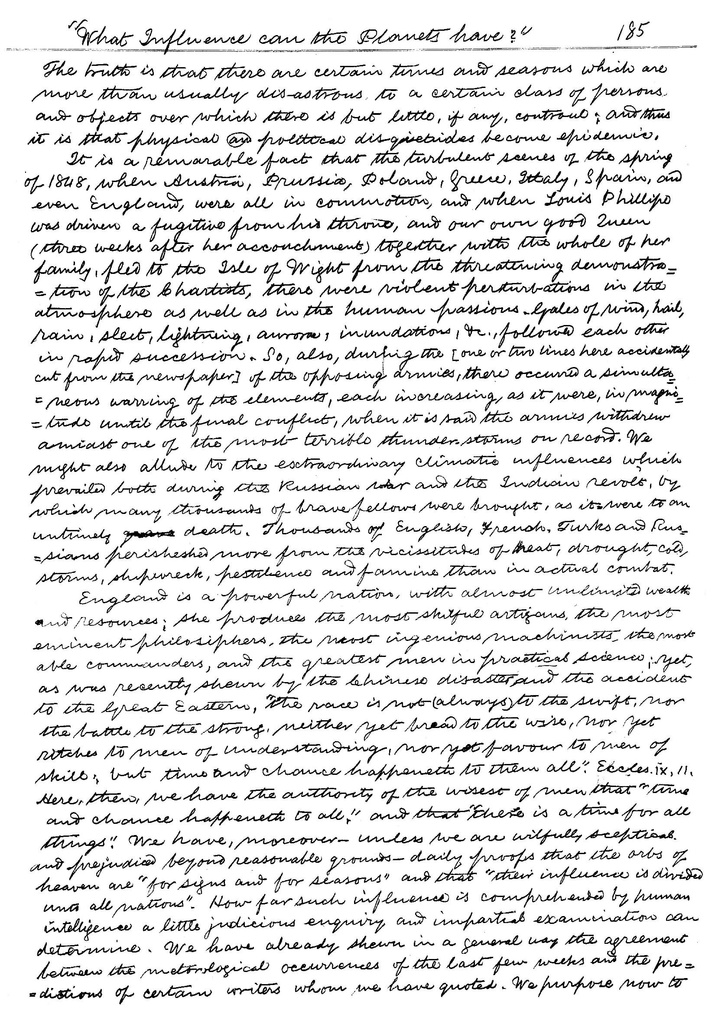 "What Influence can the Planets have?" 185
The truth is that there are certain times and seasons which are
more than usually dis-astrous to a certain class of persons
and objects over which there is but little, if any, controul; and thus
it is that physical and political dis-quietudes become epidemic.
It is a remarable fact that the turbulent scenes of the spring
of 1848, when Austria, Prussia, Poland, Greece, Italy, Spain, and
even England, were all in commotion, and when Louis Phillipe
was driven a fugitive from his throne, and our own good Queen
(three weeks after her accouchment) together with the whole of her
family, fled to the Isle of Wight from the threatening demonstra=
=tion of the Chartists, there were violent perturbations in the
atmosphere as well as in the human passions. Gales of wind, hail,
rain, sleet, lightning, aurorae, inundations, &c., followed each other
in rapid succession. So, also, during the [one or two lines here accidentally
cut from the newspaper] of the opposing armies, there occurred a simulta=
=neous warring of the elements, each increasing, as it were, in magni=
=tude until the final conflict, when it is said the armies withdrew
amidst one of the most terrible thunder-storms on record. We
might also allude to the extraordinary climatic influences which
prevailed both during the Russian war and the Indian revolt, by
which many thousands of brave fellows were brought, as it were to an
untimely death. Thousands of English, French, Turks and Rus=
=sians perisheshed more from the vicissitudes of heat, drought, cold,
storms, shipwreck, pestilence and famine than in actual combat.
England is a powerful nation, with almost unlimited wealth
and resources; she produces the most skilful artizans, the most
eminent philosiphers, the most ingenious machinists, the most
able commanders, and the greatest men in practical science; yet,
as was recently shewn by the Chinese disaster and the accident
to the Great Eastern, "the race is not (always) to the swift, nor
the battle to the strong, neither yet bread to the wise, nor yet
ritches to men of understanding, nor yet favour to men of
skill; but time and chance happeneth to them all". Eccles. ix, 11.
Here, then, we have the authority of the wisest of men that "time
and chance happeneth to all," and that "there is a time for all
things". We have, moreover - unless we are wilfully sceptical
and prejudiced beyond reasonable grounds - daily proofs that the orbs of
heaven are "for signs and for seasons" and that "their influence is divided
unto all nations". How far such influence is comprehended by human
intelligence a little judicious enquiry and impartial examination can
determine. We have already shewn in a general way the agreement
between the metorological occurrences of the last few weeks and the pre=
=dictions of certain writers whom we have quoted. We purpose now to